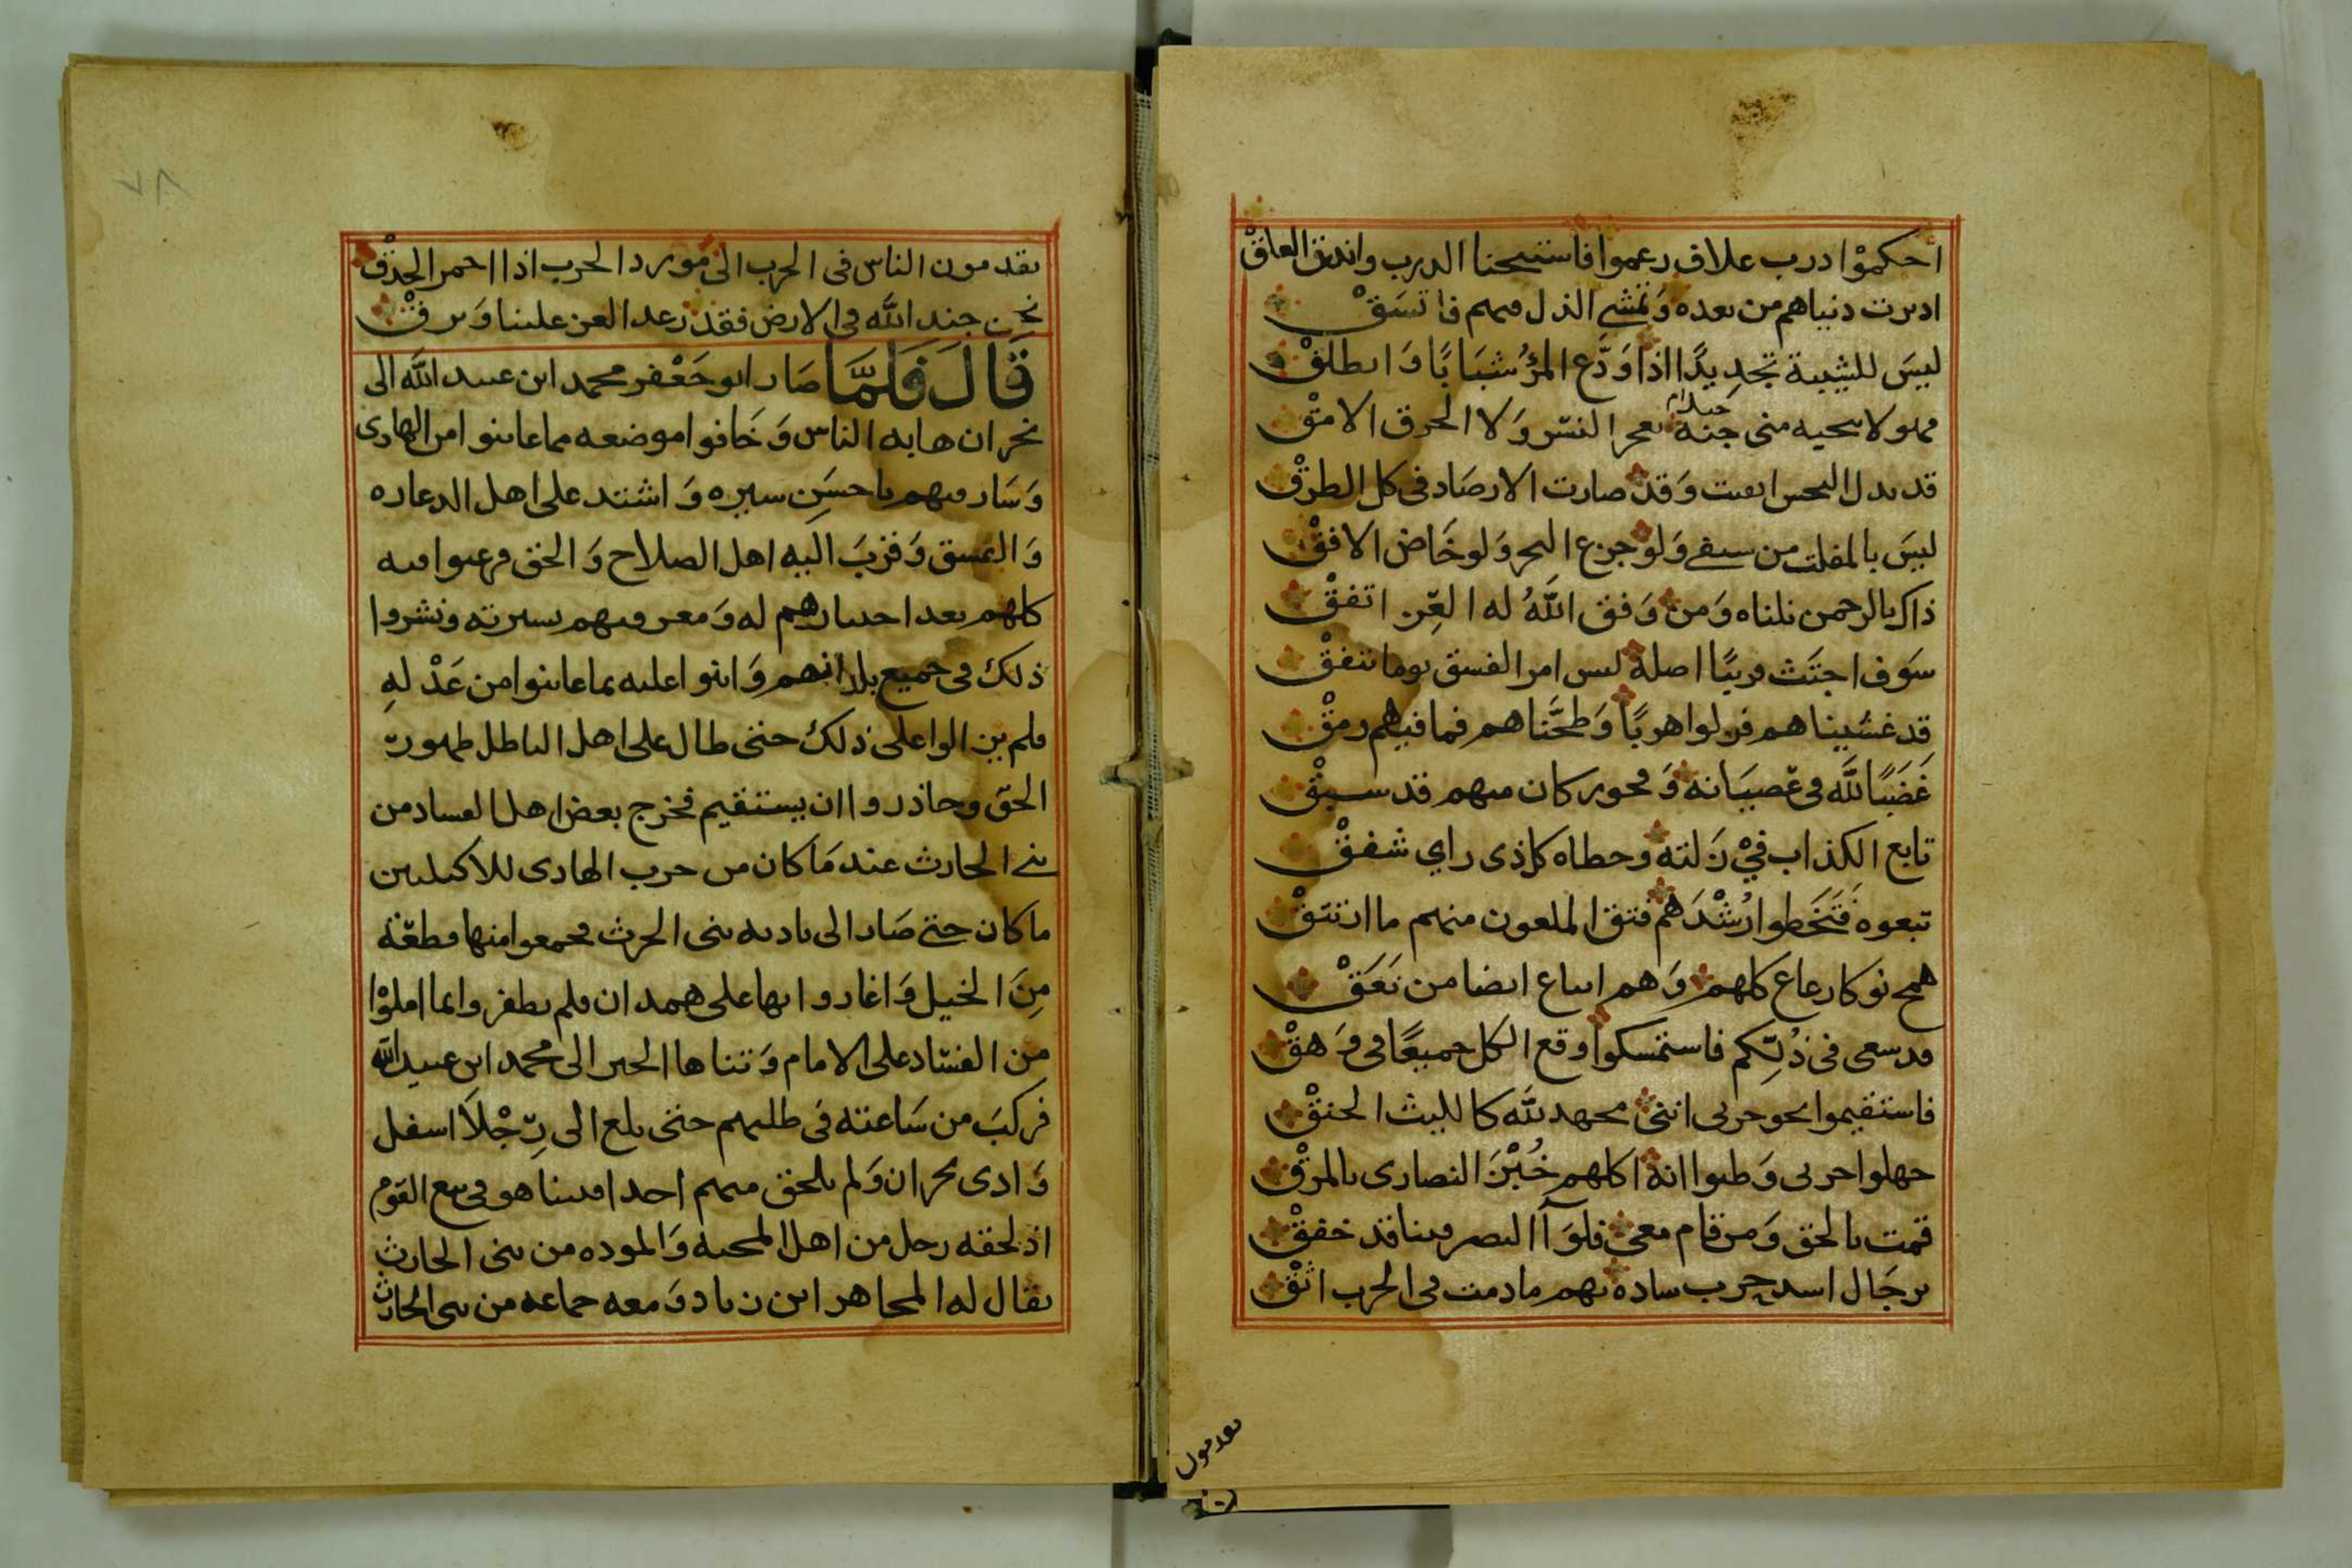 أحكموا درب علاف زعموا فاستبحنا الدرب واندق العلق
ادبرت دنياهم من بعده وتمشي الذل فيهم فاتسق
ليس للشيبة تجديدًا اذا ودّع المرؤ شبابًا وانطلق
فهو لا ينجيه مني جنة بعجر النسر ولا الحرق الامق
قد بدل النحس وقد صارت الارصاد في كل الطرق
ليس بالمفلت من سيفي ولو جزع البحر ولو خاض الافق
ذاك بالرحمن نلناه ومن وفق الله له العز اتفق
سوف اجتث قريبًا اصله ليس امر الفسق يوما يتفق
قد غشيناهم فولوا هربًا وطحناهم فما فيهم رمق
غضبًا لله في عصيانه وفجور كان منهم قد سبق
تابع الكذاب في زلته وخطاه كل ذي راي شفق
تبعوه فتخطوا رشدهم فتق الملعون منهم ما ارتتق
همج نوكا رعاع كلهم وهم اتباع ايضا من نعق
قد سعى في ذلتكم فاستمسكوا وقع الكل جميعًا في وهق
فاستقيموا نحو حربي انني مجهد لله كالليث الحنق
جهلوا حربي وظنوا انه اكلهم خبز النصارى بالمرق
قمت بالحق ومن قام معي فلوآ النصر فينا قد خفق
برجال اسد حرب ساده بهم ما دمت في الحرب اثق
يقدمون
٧٨
يقدمون الناس في الحرب الى مورد الحرب اذا احمر الحدق
نحن جند الله في الارض فقد رعد العز علينا وبرق
قال فلما صار ابو جعفر محمد ابن عبيد الله الى
نجران هابه الناس وخافوا موضعه مما عاينوا من الهادي
وسار فيهم باحسن سيره واشتد على اهل الدعاره
والفسق وقرب اليه اهل الصلاح والحق فرغبوا فيه
كلهم بعد اختبارهم له ومعرفتهم بسيرته ونشروا
ذلك في جميع بلدانهم واثنوا عليه بما عاينوا من عدله
فلم يزالوا على ذلك حتى طال على اهل الباطل ظهور
الحق وحاذروا ان يستقيم فخرج بعض اهل الفساد من
بني الحارث عند ما كان من حرب الهادي للاكيليين
ما كان حتى صار الى باديه بني الحرث فجمعوا منها قطعة
من الخيل واغاروا بها على همدان فلم يظفروا بما املوا
من الفساد على الامام وتناها الخبر الى محمد ابن عبيد الله
فركب من ساعته في طلبهم حتى بلغ الى رجلا اسفل
وادي نجران ولم يلحق منهم احد افبينا هو في تتبع القوم
اذ لحقه رجل من اهل المحبه والموده من بني الحارث
يقال له المجاهر ابن زياد ومعه جماعه من بني الحارث